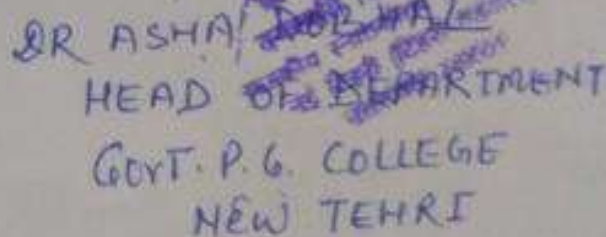 DR ASHA DOBHAL
HEAD OF DEPARTMENT
GOVT. P. G. COLLEGE
NEW TEHRI